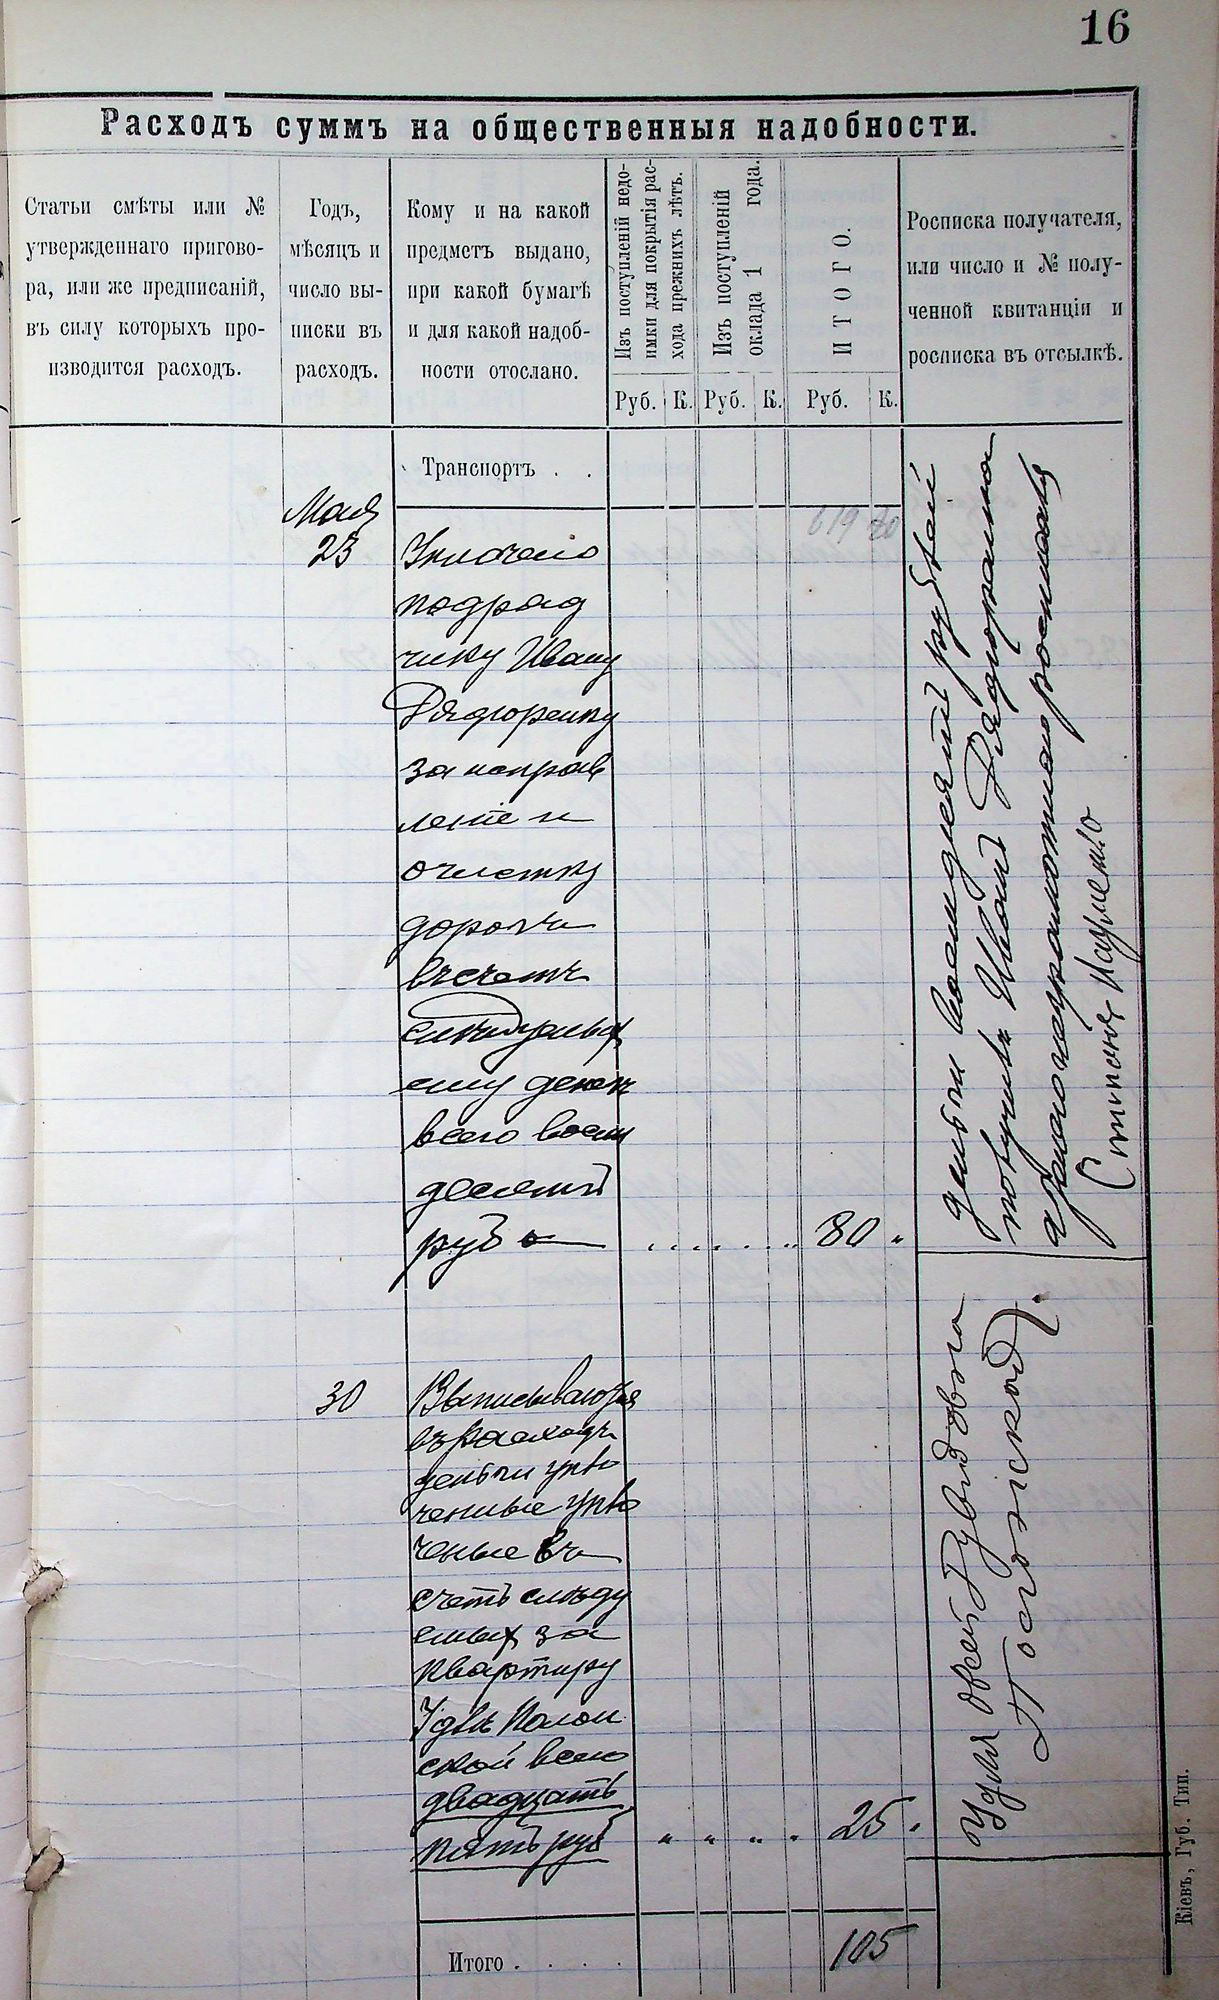 16
Расходъ суммъ на общественныя надобности.
Статьи смѣты или №
утвержденнаго пригово-
ра, или же предписаній,
въ силу которыхъ про-
изводится расходъ.
Годъ,
мѣсяцъ и
число вы-
писки въ
расходъ.
Кому и на какой
предметъ выдано,
при какой бумагѣ
и для какой надоб-
ности отослано.
Изъ поступленій недо-
имки для покрытія рас-
хода прежнихъ лѣтъ.
Изъ поступленій
оклада 1 года.
ИТОГО.
Росписка получателя,
или число и № полу-
ченной квитанціи и
росписка въ отсылкѣ.
Руб. К. Руб. К. Руб. К.
Транспортъ . .
619 80
Мая
23
Уплочено
подряд
чику Ивану
за исправ
леніе и
очистку
дороги
въ счетъ
ему денегъ
всего восем
десятъ
руб
80 "
деньги восимдесятъ рублей
получилъ Иванъ
а занего неграмотнаго росписался
Степанъ Науменко
30
Выписываются
въ расходъ
деньги упло
ченные упло
ченые въ
счетъ слѣду
емыхъ за
квартиру
Удлѣ Полон
ской всего
двадцать
пять руб
" " " " 25 "
Удля
Итого . . . .
105
Кіевъ, Губ. Тип.